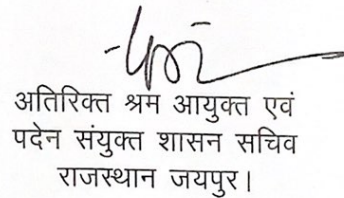 अतिरिक्त श्रम आयुक्त एवं
पदेन संयुक्त शासन सचिव
राजस्थान जयपुर।